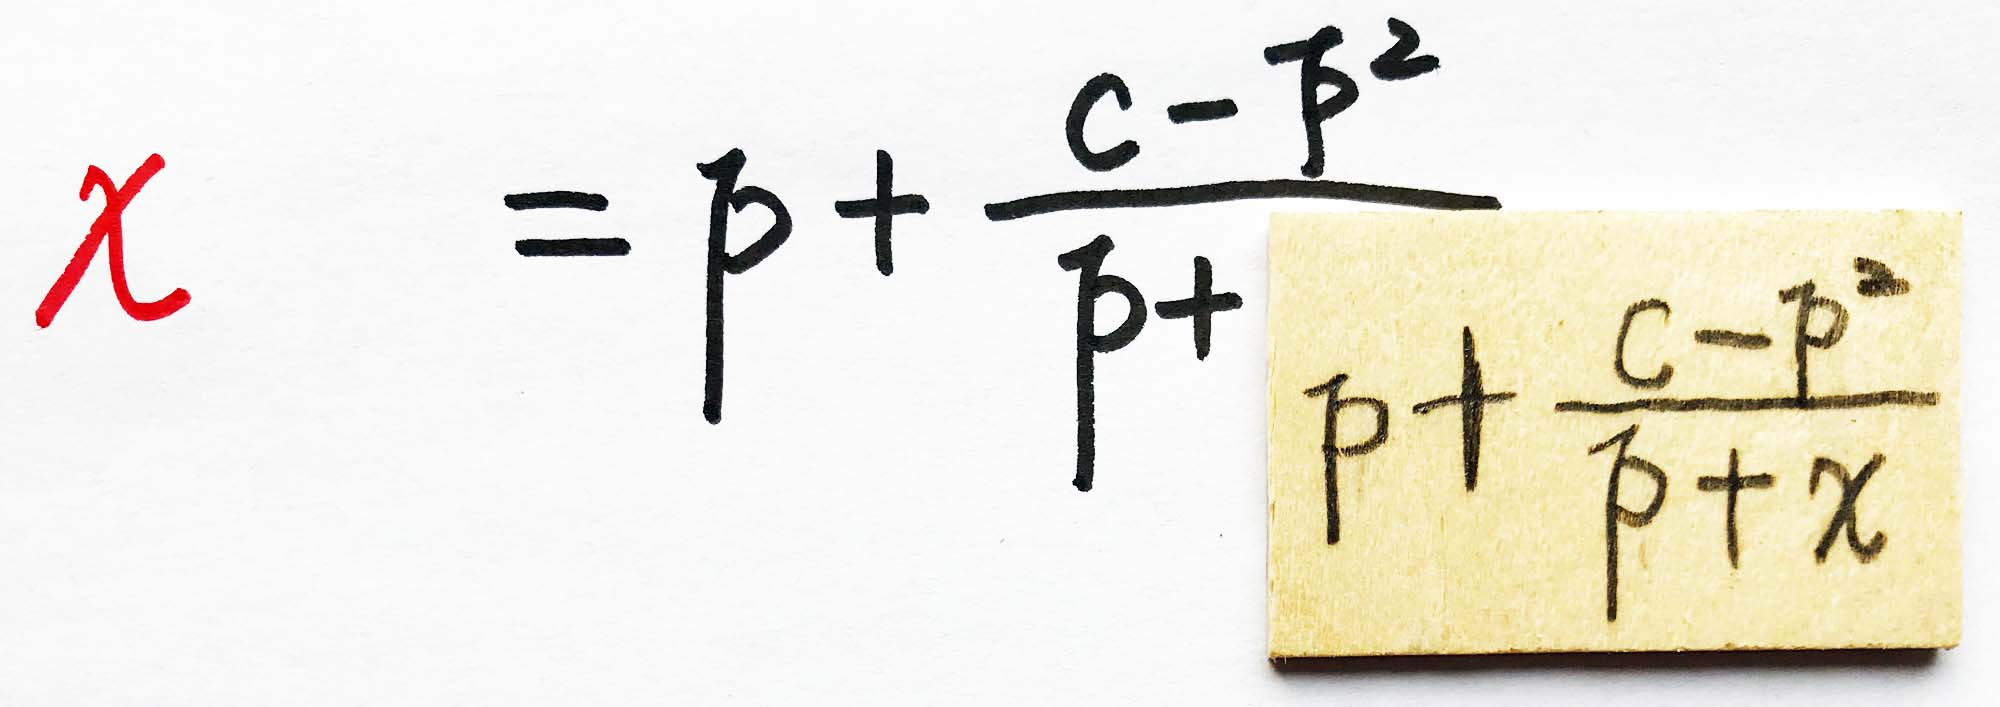 x = p + \frac{c - p^2}{p + p + \frac{c - p^2}{p + x}}